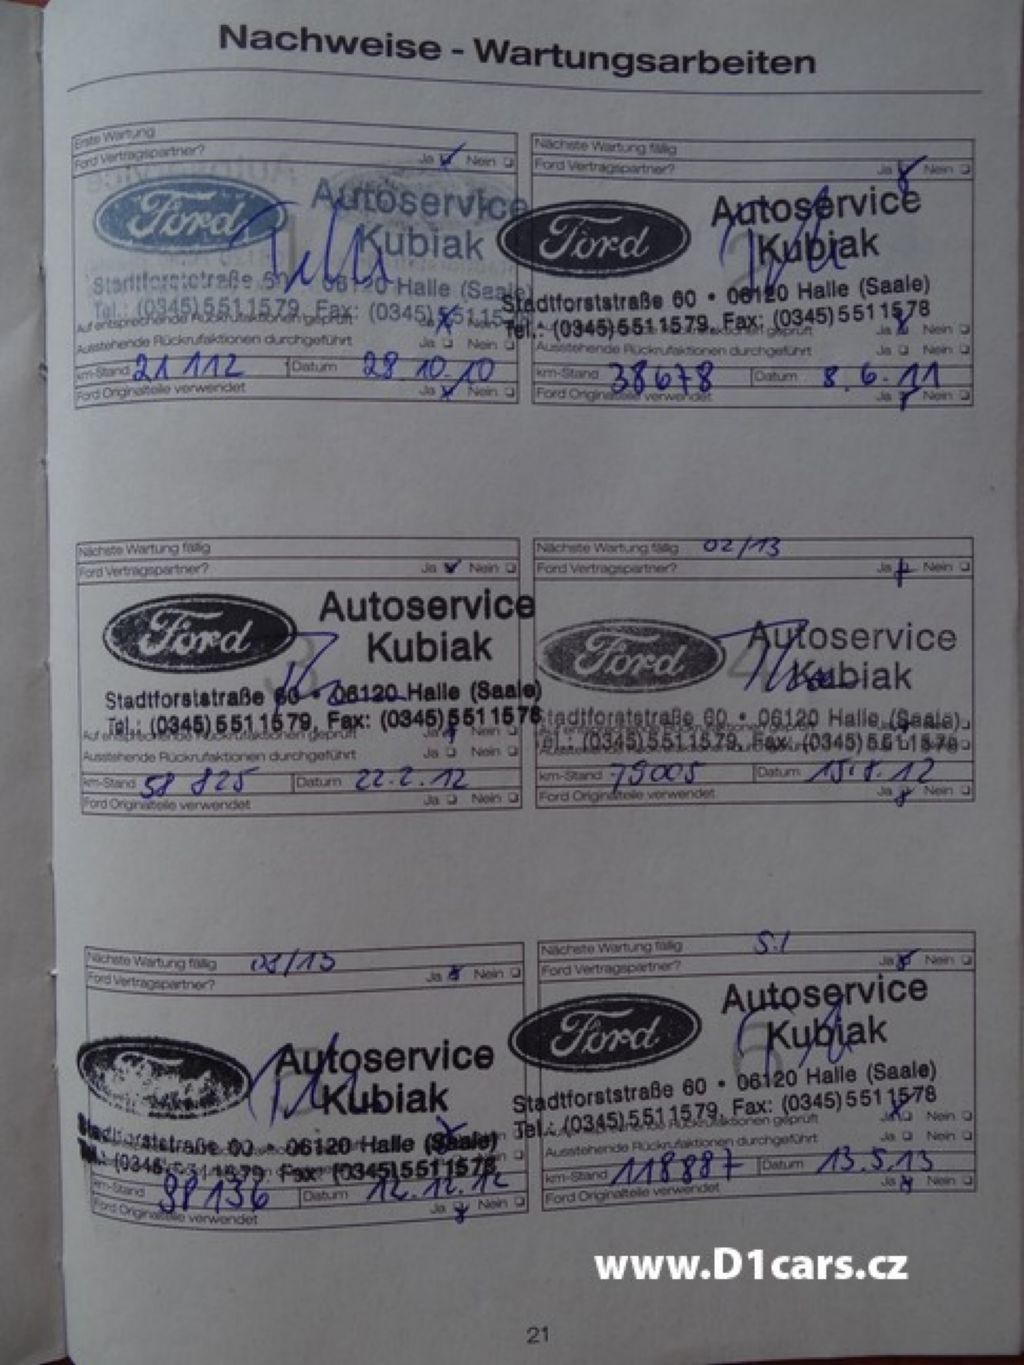 Nachweise - Wartungsarbeiten
Erste Wartung
Ford Vertragspartner? Ja Nein
Ford Autoservice
Kubiak
Stadtforststraße 60 • 06120 Halle (Saale)
Tel.: (0345) 5511579, Fax: (0345) 55115
Auf entsprechende Rückrufaktionen geprüft Ja Nein
Ausstehende Rückrufaktionen durchgeführt Ja Nein
km-Stand 21 112 Datum 28 10.10
Ford Originalteile verwendet Ja Nein
Nächste Wartung fällig
Ford Vertragspartner? Ja Nein
Ford Autoservice
Kubiak
2
Stadtforststraße 60 • 06120 Halle (Saale)
Tel.: (0345) 5511579, Fax: (0345) 5511578
Ausstehende Rückrufaktionen durchgeführt Ja Nein
km-Stand 38678 Datum 8.6.11
Ford Originalteile verwendet Ja Nein
Nächste Wartung fällig
Ford Vertragspartner? Ja Nein
Ford Autoservice
3 Kubiak
Stadtforststraße 60 • 06120 Halle (Saale)
Tel.: (0345) 5511579, Fax: (0345) 5511578
Auf entsprechende Rückrufaktionen geprüft Ja
Ausstehende Rückrufaktionen durchgeführt Ja Nein
km-Stand 58 825 Datum 22.2.12
Ford Originalteile verwendet Ja Nein
Nächste Wartung fällig 02/13
Ford Vertragspartner? Ja Nein
Ford Autoservice
4 Kubiak
Stadtforststraße 60 • 06120 Halle (Saale)
Tel.: (0345) 5511579, Fax: (0345) 5511578
km-Stand 79005 Datum 15.8.12
Ford Originalteile verwendet Ja Nein
Nächste Wartung fällig
Ford Vertragspartner? Ja Nein
Autoservice
Kubiak
Stadtforststraße 60 • 06120 Halle (Saale)
Tel.: (0345) 5511579 Fax (0345) 5511578
km-Stand 98136 Datum 12.12.12
Ford Originalteile verwendet Ja Nein
Nächste Wartung fällig
Ford Vertragspartner? Ja Nein
Ford Autoservice
6 Kubiak
Stadtforststraße 60 • 06120 Halle (Saale)
Tel.: (0345) 5511579, Fax: (0345) 5511578
Ja Nein
Ausstehende Rückrufaktionen durchgeführt Ja Nein
km-Stand 118887 Datum 13.5.13
Ford Originalteile verwendet Ja Nein
www.D1cars.cz
21